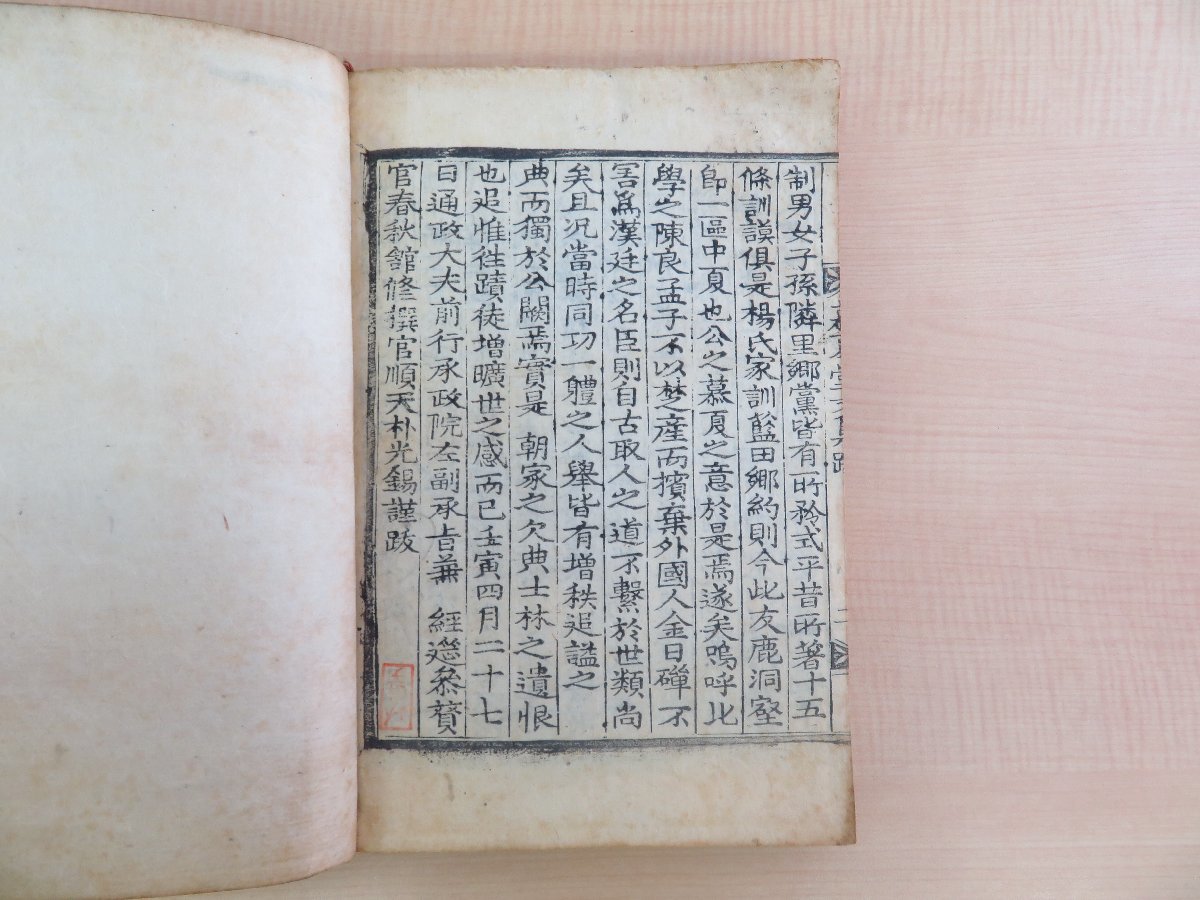 制男女子孫隣里鄉黨皆有所矜式平昔所著十五
條訓謨俱是楊氏家訓藍田鄉約則今此友鹿洞壑
卽一區中夏也公之慕夏之意於是焉遂矣嗚呼北
學之陳良孟子不以楚産而擯棄外國人金日磾不
害爲漢廷之名臣則自古取人之道不繫於世類尚
矣且況當時同功一體之人舉皆有增秩追諡之
典而獨於公闕焉實是 朝家之欠典士林之遺恨
也追惟徃蹟徒增曠世之感而已壬寅四月二十七
日通政大夫前行承政院左副承旨兼 經筵叅贊
官春秋館修撰官順天朴光錫謹跋
慕夏堂文集跋